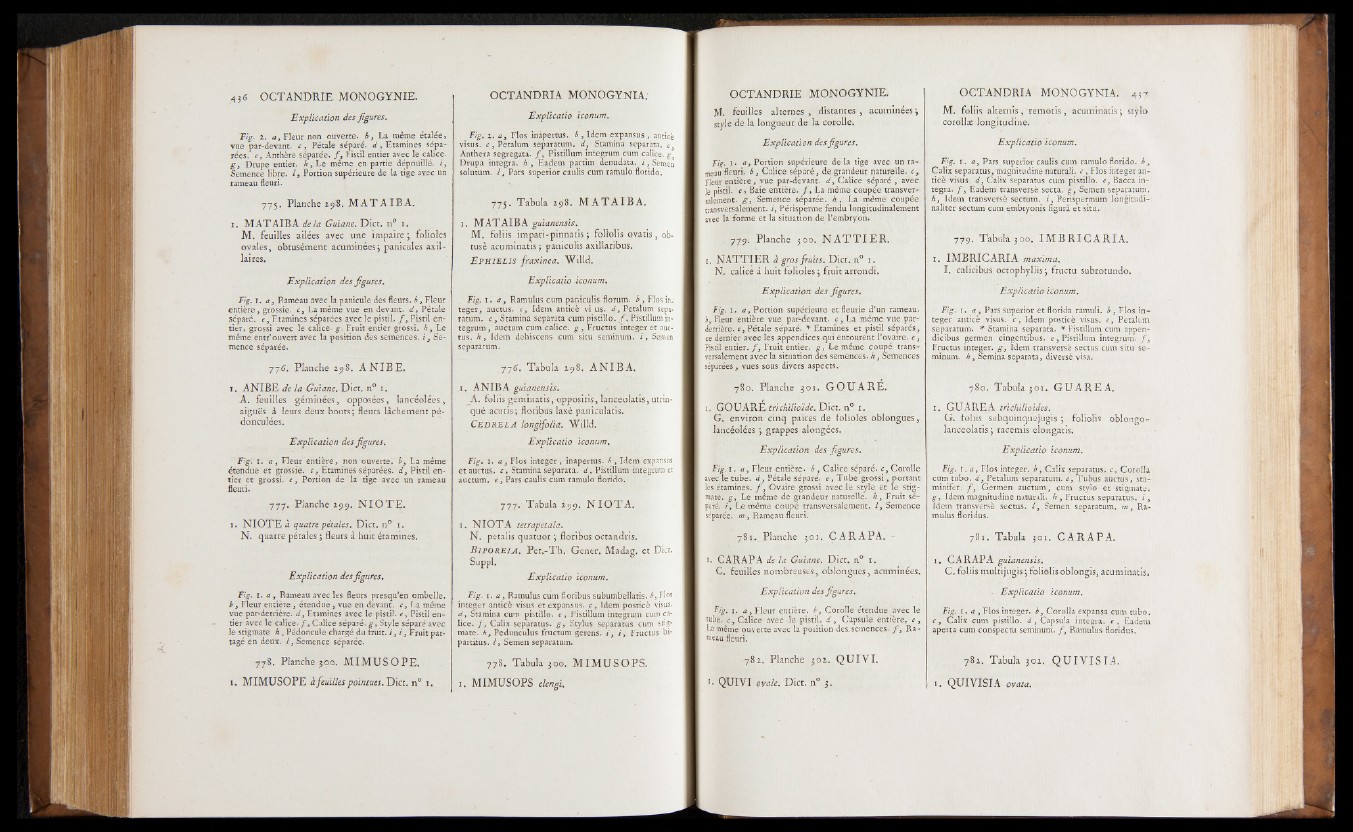 436 OCTANDRIE MONOGYNIE.
Explication des figures.
Fig. 2. a, Fleur non ouverte. b, La même étalée,
vue par-devant. c, Pétale séparé. d, Etamines sépa-
rées. e, Anthère séparée. f, Pistil entier avec le calice.
g, Drupe entier. h, Le même en partie dépouillé. i,
Semence libre. l, Portion supérieure de la tige avec un
rameau fleuri.
775. Planche 298. MATAIBA.
1. MATAIBA de la Guiane. Dict. n° 1.
M. feuilles ailées avec une impaire; folioles
ovales, obtusément acuminées; panicules axil-
laires.
Explication des figures.
Fig. 1. a, Rameau avec la panicule des fleurs. b, Fleur
entière, grossie. c, La même vue en devant. d, Pétale
séparé. e, Etamines séparées avec le pistil. f, Pistil en-
tier, grossi avec le calice. g. Fruit entier grossi. h, Le
même entr'ouvert avec la position des semences. i, Se-
mence séparée.
776. Planche 298. ANIBE.
1. ANIBE de la Guiane. Dict. n° 1.
A. feuilles géminées, opposées, lancéolées,
aiguës à leurs deux bouts; fleurs lâchement pé-
donculées.
Explication des figures.
Fig. 1. a, Fleur entière, non ouverte. b, La même
étendue et grossie. c, Etamines séparées. d, Pistil en-
tier et grossi. e, Portion de la tige avec un rameau
fleuri.
777. Planche 299. NIOTE.
1. NIOTE à quatre pétales. Dict. n° 1.
N. quatre pétales; fleurs à huit étamines.
Explication des figures.
Fig. 1. a, Rameau avec les fleurs presqu'en ombelle.
b, Fleur entière, étendue, vue en devant. c, La même
vue par-derrière. d, Etamines avec le pistil. e, Pistil en-
tier avec le calice. f, Calice séparé. g, Style séparé avec
le stigmate. h, Pédoncule chargé du fruit. i, i, Fruit par-
tagé en deux. l, Semence séparée.
778. Planche 300. MIMUSOPE.
1. MIMUSOPE à feuilles pointues. Dict. n° 1.
OCTANDRIA MONOGYNIA.
Explicatio iconum.
Fig. 2. a, Flos inapertus. b, Idem expansus, anticè
visus. c, Petalum separatum. d, Stamina separata. e,
Anthera segregata. f, Pistillum integrum cum calice. g,
Drupa integra. h, Eadem partim denudata. i, Semen
solutum. l, Pars superior caulis cum ramulo florido.
775. Tabula 298. MATAIBA.
1. MATAIBA guianensis.
M. foliis impari-pinnatis; foliolis ovatis, ob-
tusè acuminatis; paniculis axillaribus.
EPHIELIS fraxinea. Willd.
Explicatio iconum.
Fig. 1. a, Ramulus cum paniculis florum. b, Flos in-
teger, auctus. c, Idem anticè visus. d, Petalum sepa-
ratum. e, Stamina separata cum pistillo. f, Pistillum in-
tegrum, auctum cum calice. g, Fructus integer et auc-
tus. h, Idem dehiscens cum situ seminum. i, Semen
separatum.
776. Tabula 298. ANIBA.
1. ANIBA guianensis.
A. foliis geminatis, oppositis, lanceolatis, utrin-
què acutis; floribus laxè paniculatis.
CEDRELA longifolia. Willd.
Explicatio iconum.
Fig. 1. a, Flos integer, inapertus. b, Idem expansus
et auctus. c, Stamina separata. d, Pistillum integrum et
auctum. e, Pars caulis cum ramulo florido.
777. Tabula 299. NIOTA.
1. NIOTA tetrapetala.
N. petalis quatuor; floribus octandris.
BIPOREIA. Pet.-Th. Gener. Madag. et Dict.
Suppl.
Explicatio iconum.
Fig. 1. a, Ramulus cum floribus subumbellatis. b, Flos
integer anticè visus et expansus. c, Idem posticè visus.
d, Stamina cum pistillo. e, Pistillum integrum cum ca-
lice. f, Calix separatus. g, Stylus separatus cum stig-
mate. h, Pedunculus fructum gerens. i, i, Fructus bi-
partitus. l, Semen separatum.
778. Tabula 300. MIMUSOPS.
1. MIMUSOPS elengi.
OCTANDRIE MONOGYNIE.
M. feuilles alternes, distantes, acuminées;
style de la longueur de la corolle.
Explication des figures.
Fig. 1. a, Portion supérieure de la tige avec un ra-
meau fleuri. b, Calice séparé, de grandeur naturelle. c,
Fleur entière, vue par-devant. d, Calice séparé, avec
le pistil. e, Baie entière. f, La même coupée transver-
salement. g, Semence séparée. h, La même coupée
transversalement. i, Périsperme fendu longitudinalement
avec la forme et la situation de l'embryon.
779. Planche 300. NATTIER.
1. NATTIER à gros fruits. Dict. n° 1.
N. calice à huit folioles; fruit arrondi.
Explication des figures.
Fig. 1. a, Portion supérieure et fleurie d'un rameau.
b, Fleur entière vue par-devant. c, La même vue par-
derrière. c, Pétale séparé. * Etamines et pistil séparés,
ce dernier avec les appendices qui entourent l'ovaire. e,
Pistil entier. f, Fruit entier. g, Le même coupé trans-
versalement avec la situation des semences. h, Semences
séparées, vues sous divers aspects.
780. Planche 301. GOUARÉ.
1. GOUARÉ trichilioïde. Dict. n° 1.
G. environ cinq paires de folioles oblongues,
lancéolées; grappes alongées.
Explication des figures.
Fig. 1. a, Fleur entière. b, Calice séparé. c, Corolle
avec le tube. d, Pétale séparé. e, Tube grossi, portant
les étamines. f, Ovaire grossi avec le style et le stig-
mate. g, Le même de grandeur naturelle. h, Fruit sé-
paré. i, Le même coupé transversalement. l, Semence
séparée. m, Rameau fleuri.
781. Planche 301. CARAPA.
1. CARAPA de la Guiane. Dict. n° 1.
C. feuilles nombreuses, oblongues, acuminées.
Explication des figures.
Fig. 1. a, Fleur entière. b, Corolle étendue avec le
tube. c, Calice avec le pistil. d, Capsule entière. e,
La même ouverte avec la position des semences. f, Ra-
meau fleuri.
782. Planche 302. QUIVI.
1. QUIVI ovale. Dict. n° 3.
OCTANDRIA MONOGYNIA. 437
M. foliis alternis, remotis, acuminatis; stylo
corollæ longitudine.
Explicatio iconum.
Fig. 1. a, Pars superior caulis cum ramulo florido. b,
Calix separatus, magnitudine naturali. c, Flos integer an-
ticè visus. d, Calix separatus cum pistillo. e, Bacca in-
tegra. f, Eadem transversè secta. g, Semen separatum.
h, Idem transversè sectum. i, Perispermum longitudi-
naliter sectum cum embryonis figurâ et situ.
779. Tabula 300. IMBRICARIA.
1. IMBRICARIA maxima.
I. calicibus octophyllis; fructu subrotundo.
Explicatio iconum.
Fig. 1. a, Pars superior et florida ramuli. b, Flos in-
teger anticè visus. c, Idem posticè visus. c, Petalum
separatum. * Stamina separata. * Pistillum cum appen-
dicibus germen cingentibus. e, Pistillum integrum. f,
Fructus integer. g, Idem transversè sectus cum situ se-
minum. h, Semina separata, diversè visa.
780. Tabula 301. GUAREA.
1. GUAREA trichilioides.
G. foliis subquinquejugis; foliolis oblongo-
lanceolatis; racemis elongatis.
Explicatio iconum.
Fig. 1. a, Flos integer. b, Calix separatus. c, Corolla
cum tubo. d, Petalum separatum. e, Tubus auctus, sta-
minifer. f, Germen auctum, cum stylo et stigmate.
g, Idem magnitudine naturali. h, Fructus separatus. i,
Idem transversè sectus. l, Semen separatum. m, Ra-
mulus floridus.
781. Tabula 301. CARAPA.
1. CARAPA guianensis.
C. foliis multijugis; foliolis oblongis, acuminatis.
Explicatio iconum.
Fig. 1. a, Flos integer. b, Corolla expansa cum tubo.
c, Calix cum pistillo. d, Capsula integra. e, Eadem
aperta cum conspectu seminum. f, Ramulus floridus.
782. Tabula 302. QUIVISIA.
1. QUIVISIA ovata.